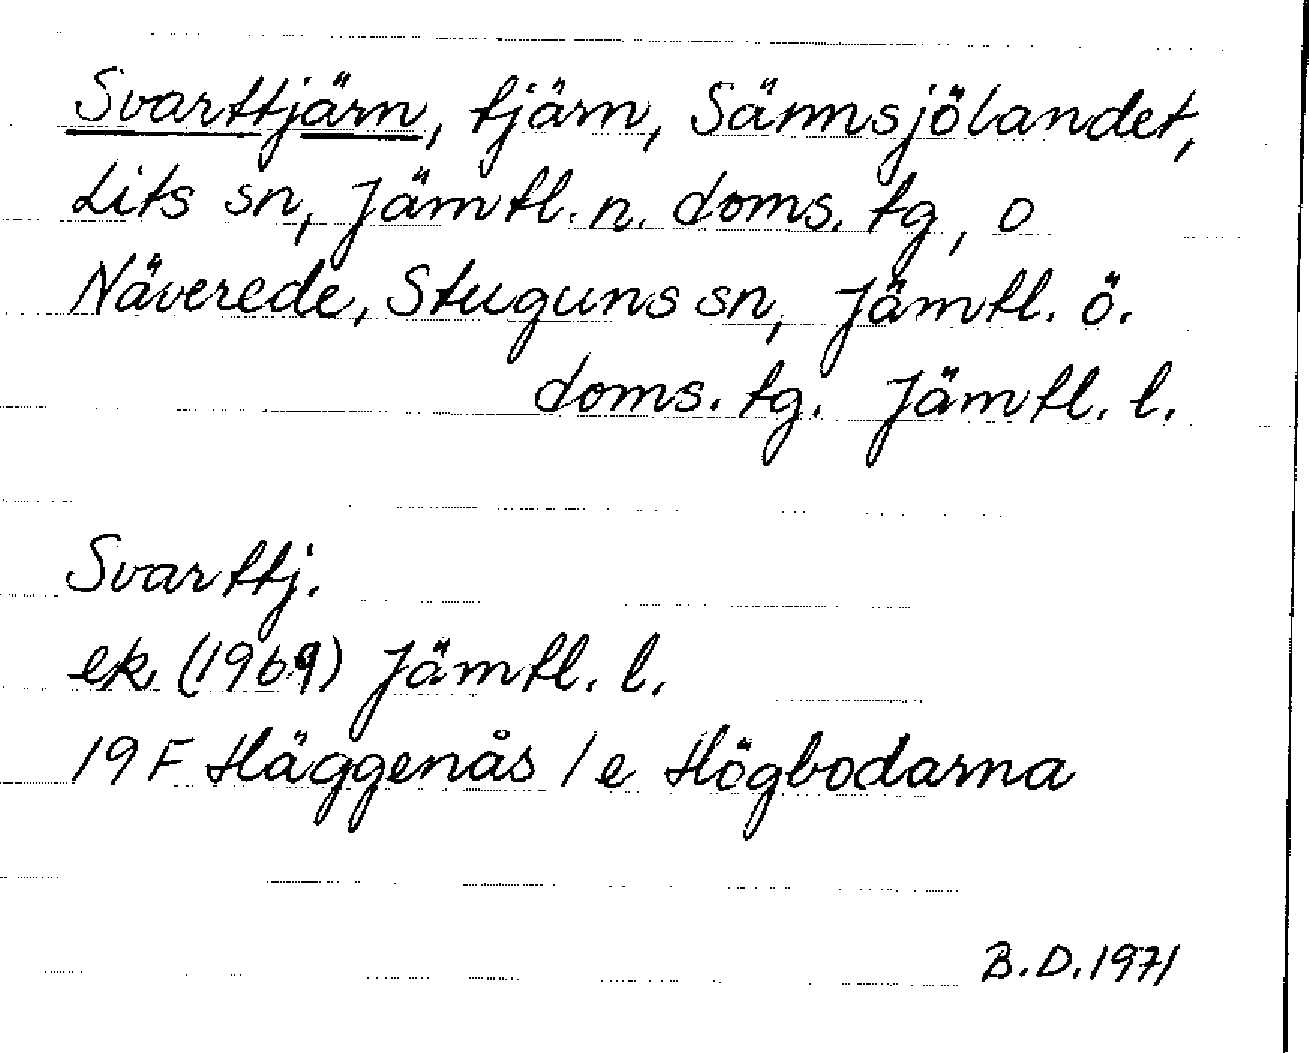 Svarttjärn, tjärn, Sännsjölandet,
Lits sn, Jämtl. n. doms. tg, o
Näverede, Stuguns sn, Jämtl. ö.
doms. tg. Jämtl. l.
Svarttj.
ek. (1969) Jämtl. l.
19 F Häggenås / e Högbodarna
B.D. 1971